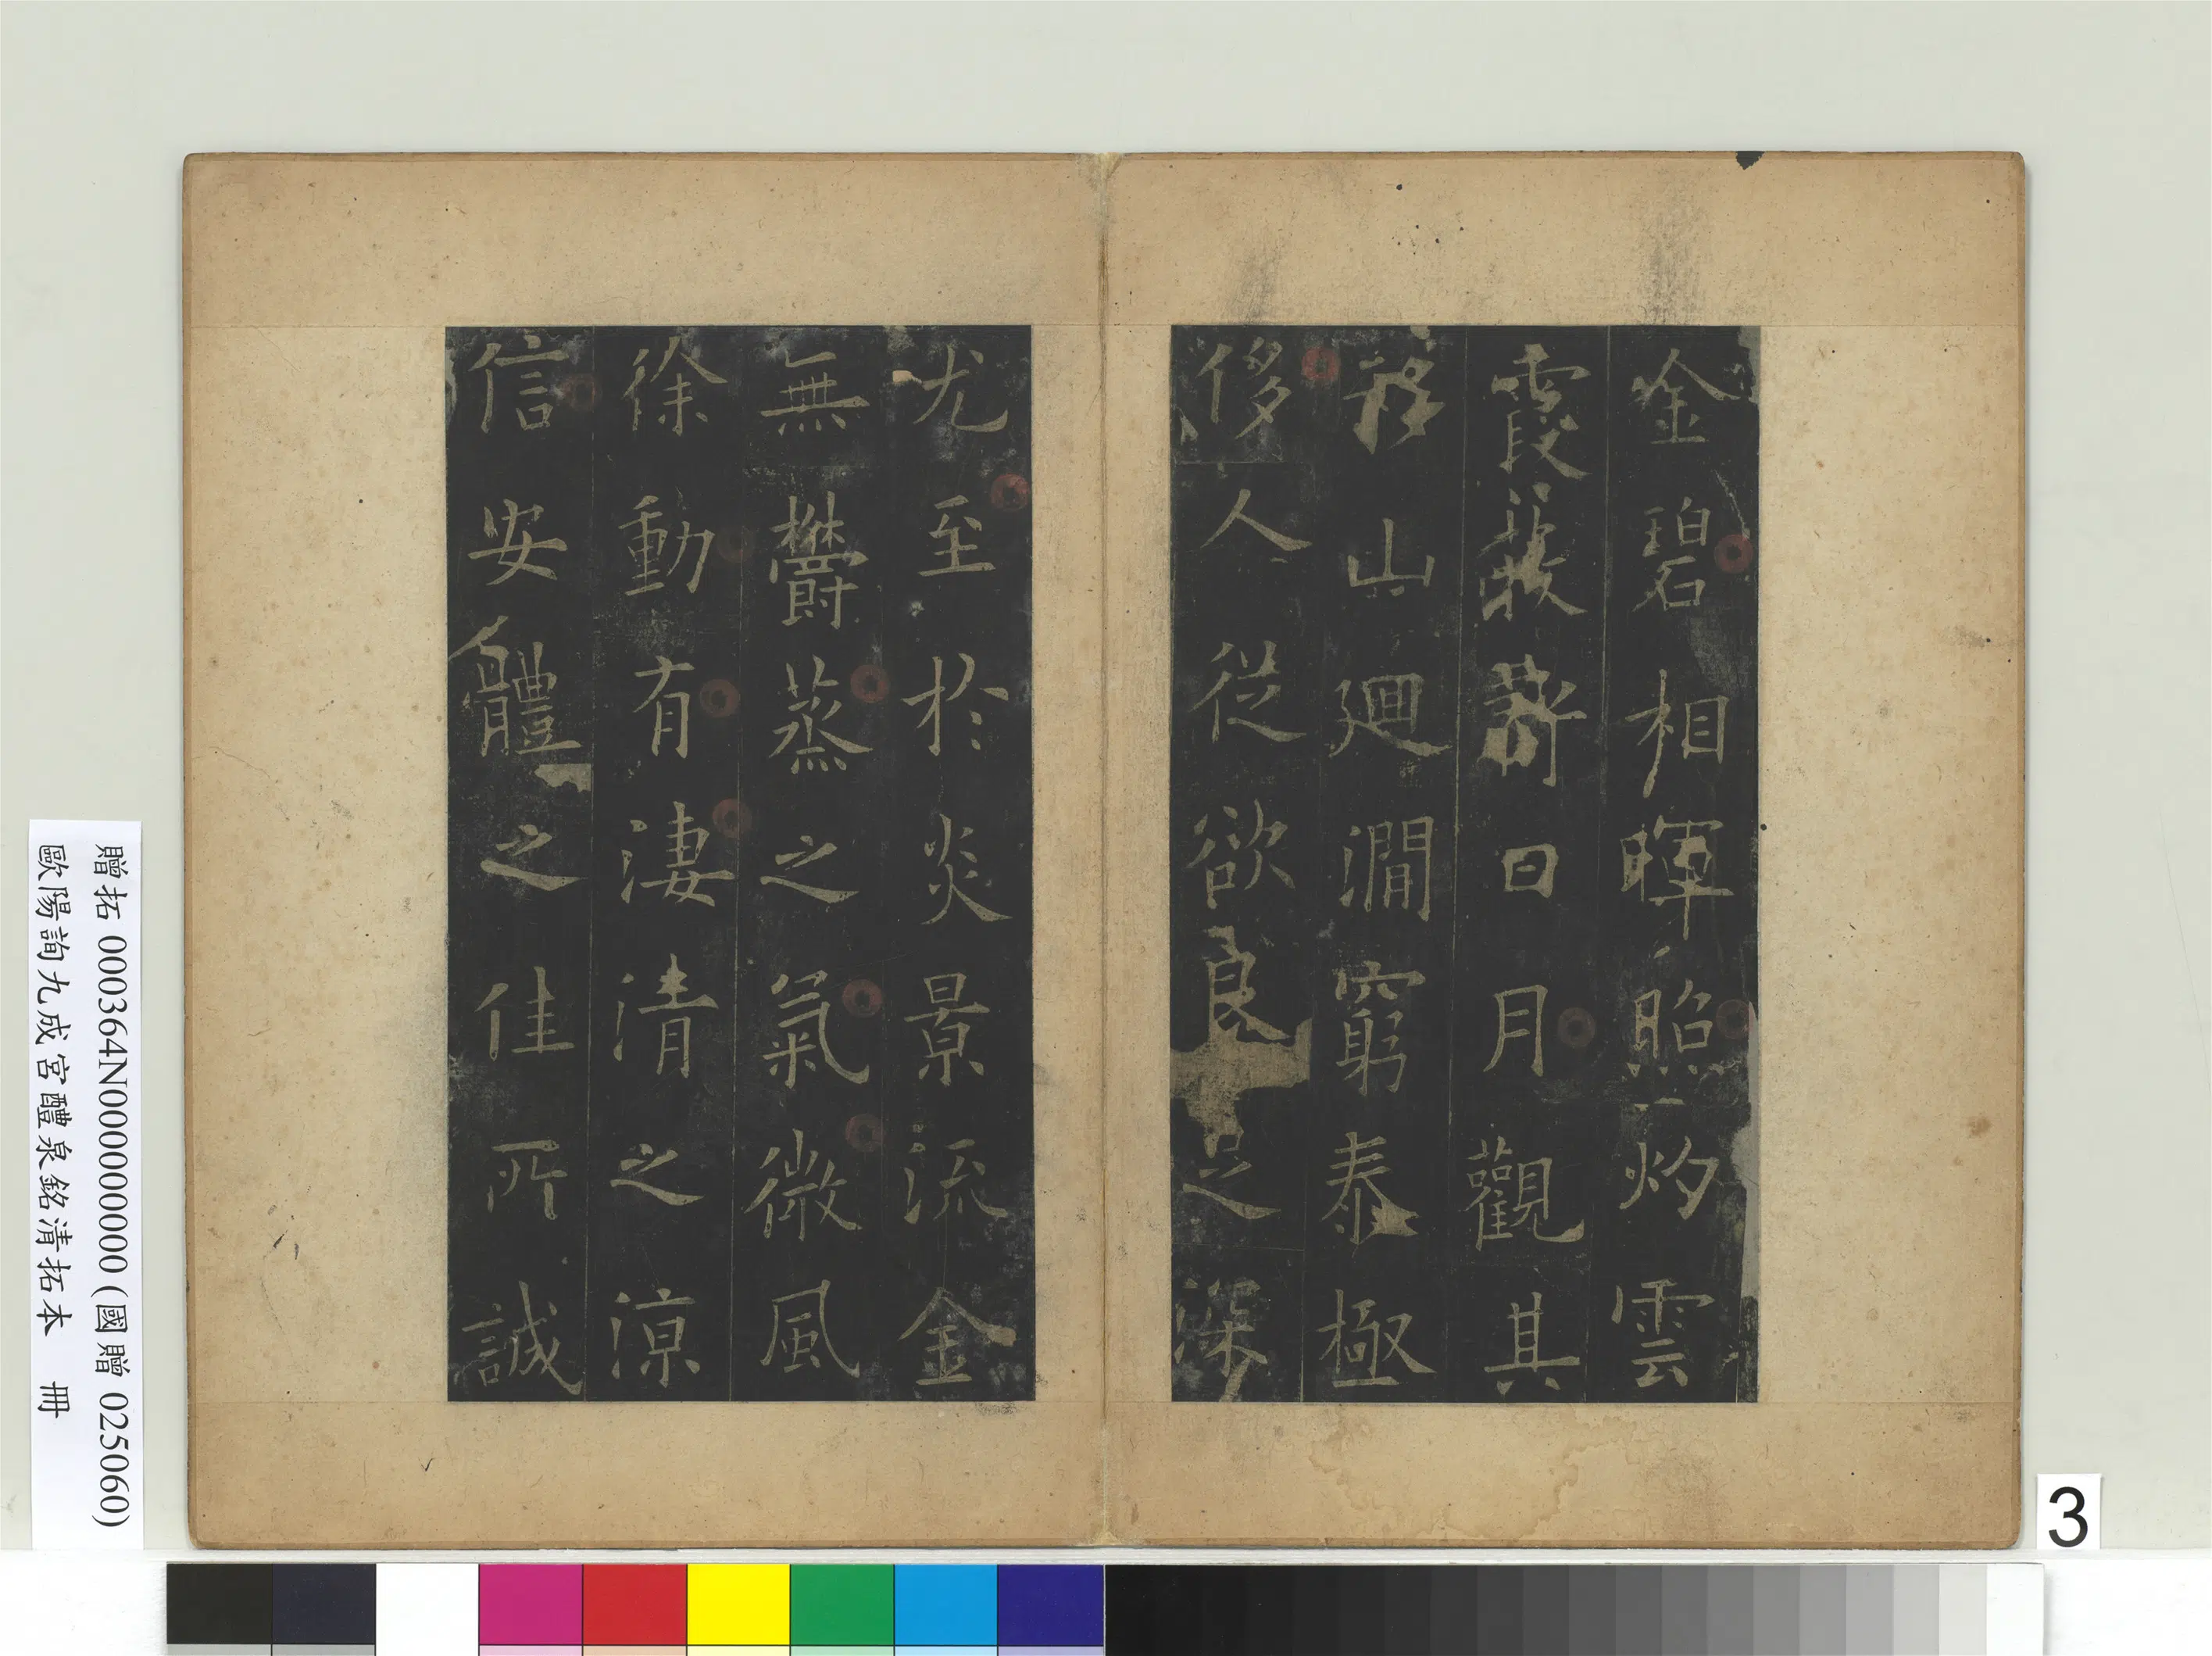 金碧相暉照灼雲
霞蔽虧日月觀其
移山廻澗窮泰極
侈人從欲良足深
尤至於炎景流金
無欝蒸之氣微風
徐動有淒清之涼
信安體之佳所誠
贈拓 000364N000000000 (國贈 025060)
歐陽詢九成宮醴泉銘清拓本 冊
3